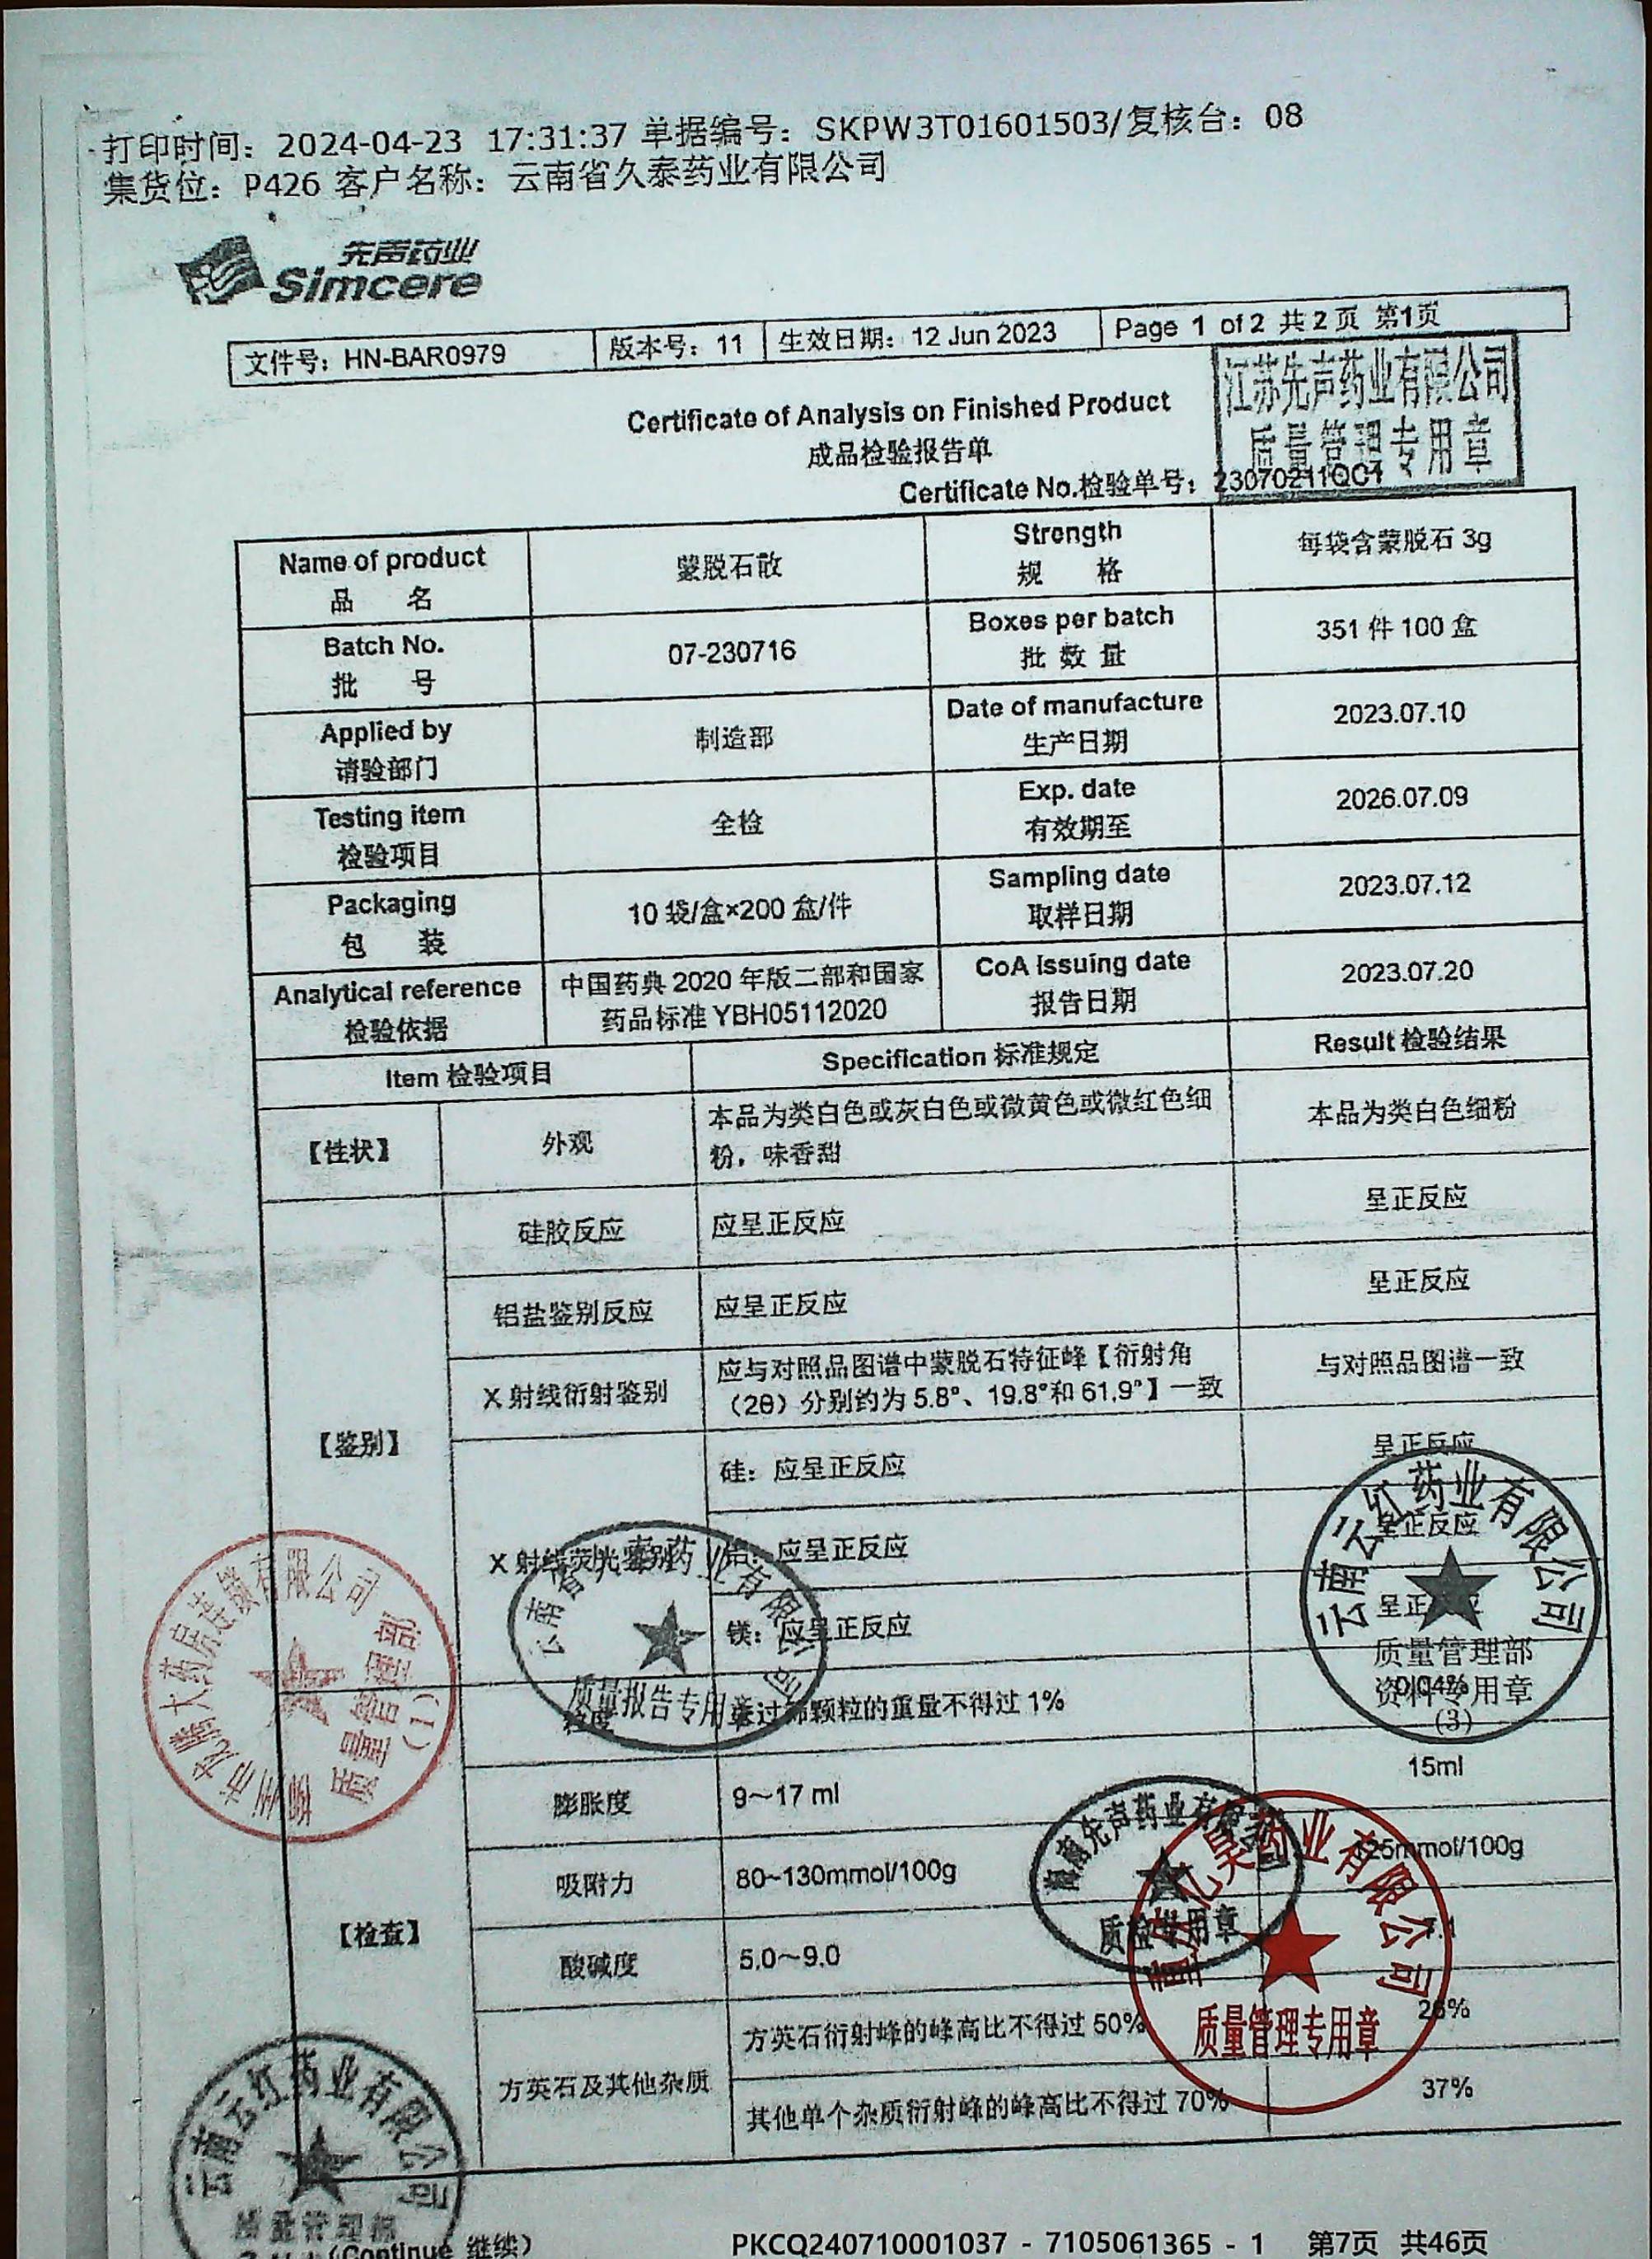 打印时间：2024-04-23 17:31:37 单据编号：SKPW3T01601503/复核台：08
集货位：P426 客户名称：云南省久泰药业有限公司
先声药业
Simcere
文件号：HN-BAR0979 版本号：11 生效日期：12 Jun 2023 Page 1 of 2 共2页 第1页
江苏先声药业有限公司
质量管理专用章
Certificate of Analysis on Finished Product
成品检验报告单
Certificate No.检验单号：23070211QC1
Name of product 蒙脱石散 Strength 每袋含蒙脱石 3g
品 名 规 格
Batch No. 07-230716 Boxes per batch 351 件 100 盒
批 号 批 数 量
Applied by 制造部 Date of manufacture 2023.07.10
请验部门 生产日期
Testing item 全检 Exp. date 2026.07.09
检验项目 有效期至
Packaging 10 袋/盒×200 盒/件 Sampling date 2023.07.12
包 装 取样日期
Analytical reference 中国药典 2020 年版二部和国家 CoA Issuing date 2023.07.20
检验依据 药品标准 YBH05112020 报告日期
Item 检验项目 Specification 标准规定 Result 检验结果
【性状】 外观 本品为类白色或灰白色或微黄色或微红色细 本品为类白色细粉
粉，味香甜
硅胶反应 应呈正反应 呈正反应
铝盐鉴别反应 应呈正反应 呈正反应
X 射线衍射鉴别 应与对照品图谱中蒙脱石特征峰【衍射角 与对照品图谱一致
（2θ）分别约为 5.8°、19.8°和 61.9°】一致
【鉴别】
硅：应呈正反应 呈正反应
X 射线荧光鉴别 应呈正反应 呈正反应
镁：应呈正反应 呈正
粒度 过筛颗粒的重量不得过 1% 0.04%
膨胀度 9～17 ml 15ml
吸附力 80~130mmol/100g 25mmol/100g
【检查】
酸碱度 5.0～9.0 7.1
方英石及其他杂质 方英石衍射峰的峰高比不得过 50%
其他单个杂质衍射峰的峰高比不得过 70% 37%
云南云红药业有限公司
质量管理部
资料专用章
(3)
云南省久泰药业有限公司
质量报告专用章
大药房连锁有限公司
质量管理部
(1)
海南先声药业有限公司
质检专用章
亿昊药业有限公司
质量管理专用章
云南云红药业有限公司
(Continue 继续)
PKCQ240710001037 - 7105061365 - 1 第7页 共46页